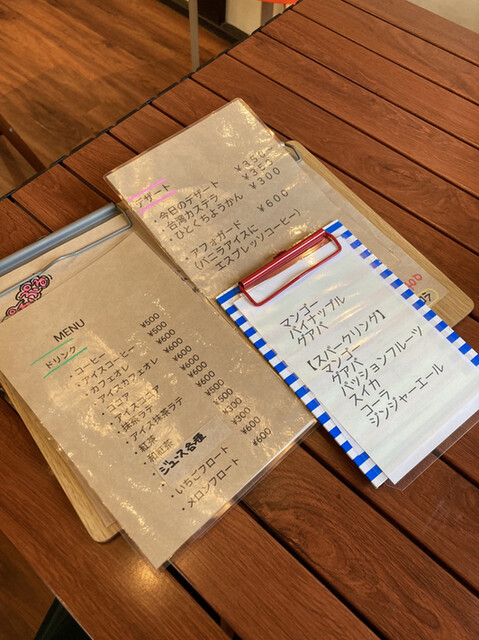 デザート
・今日のデザート ¥350
・台湾カステラ ¥350
・ひとくちようかん ¥300
・アフォガード ¥600
(バニラアイスに
エスプレッソコーヒー)
MENU
ドリンク
・コーヒー ¥500
・アイスコーヒー ¥600
・カフェオレ ¥600
・アイスカフェオレ ¥600
・ココア ¥600
・アイスココア ¥600
・抹茶ラテ ¥600
・アイス抹茶ラテ ¥600
・紅茶 ¥500
・和紅茶 ¥500
・ジュース各種 ¥300
・いちごフロート ¥600
・メロンフロート ¥600
マンゴー
パイナップル
グアバ
【スパークリング】
マンゴー
グアバ
パッションフルーツ
スイカ
コーラ
ジンジャーエール